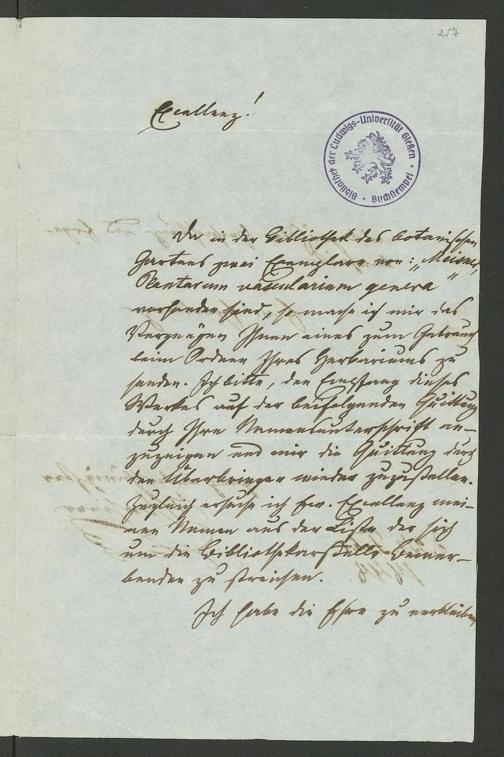 257
Excellenz!
Bibliothek der Ludwigs-Universität Gießen
Buchstempel
Da in der Bibliothek des botanischen
Gartens zwei Exemplare von: „Meisner,
Plantarum vascularium genera"
vorhanden sind, so mache ich mir das
Vergnügen Ihnen eines zum Gebrauch
beim Ordnen Ihres Herbariums zu
senden. Ich bitte, den Empfang dieses
Werkes auf der beifolgenden Quittung
durch Ihre Namensunterschrift an-
zuzeigen und mir die Quittung durch
den Überbringer wieder zuzustellen.
Zugleich ersuche ich Ew. Excellenz mei-
nen Namen aus der Liste der sich
um die Bibliothekarstelle Bewer-
benden zu streichen.
Ich habe die Ehre zu verbleiben